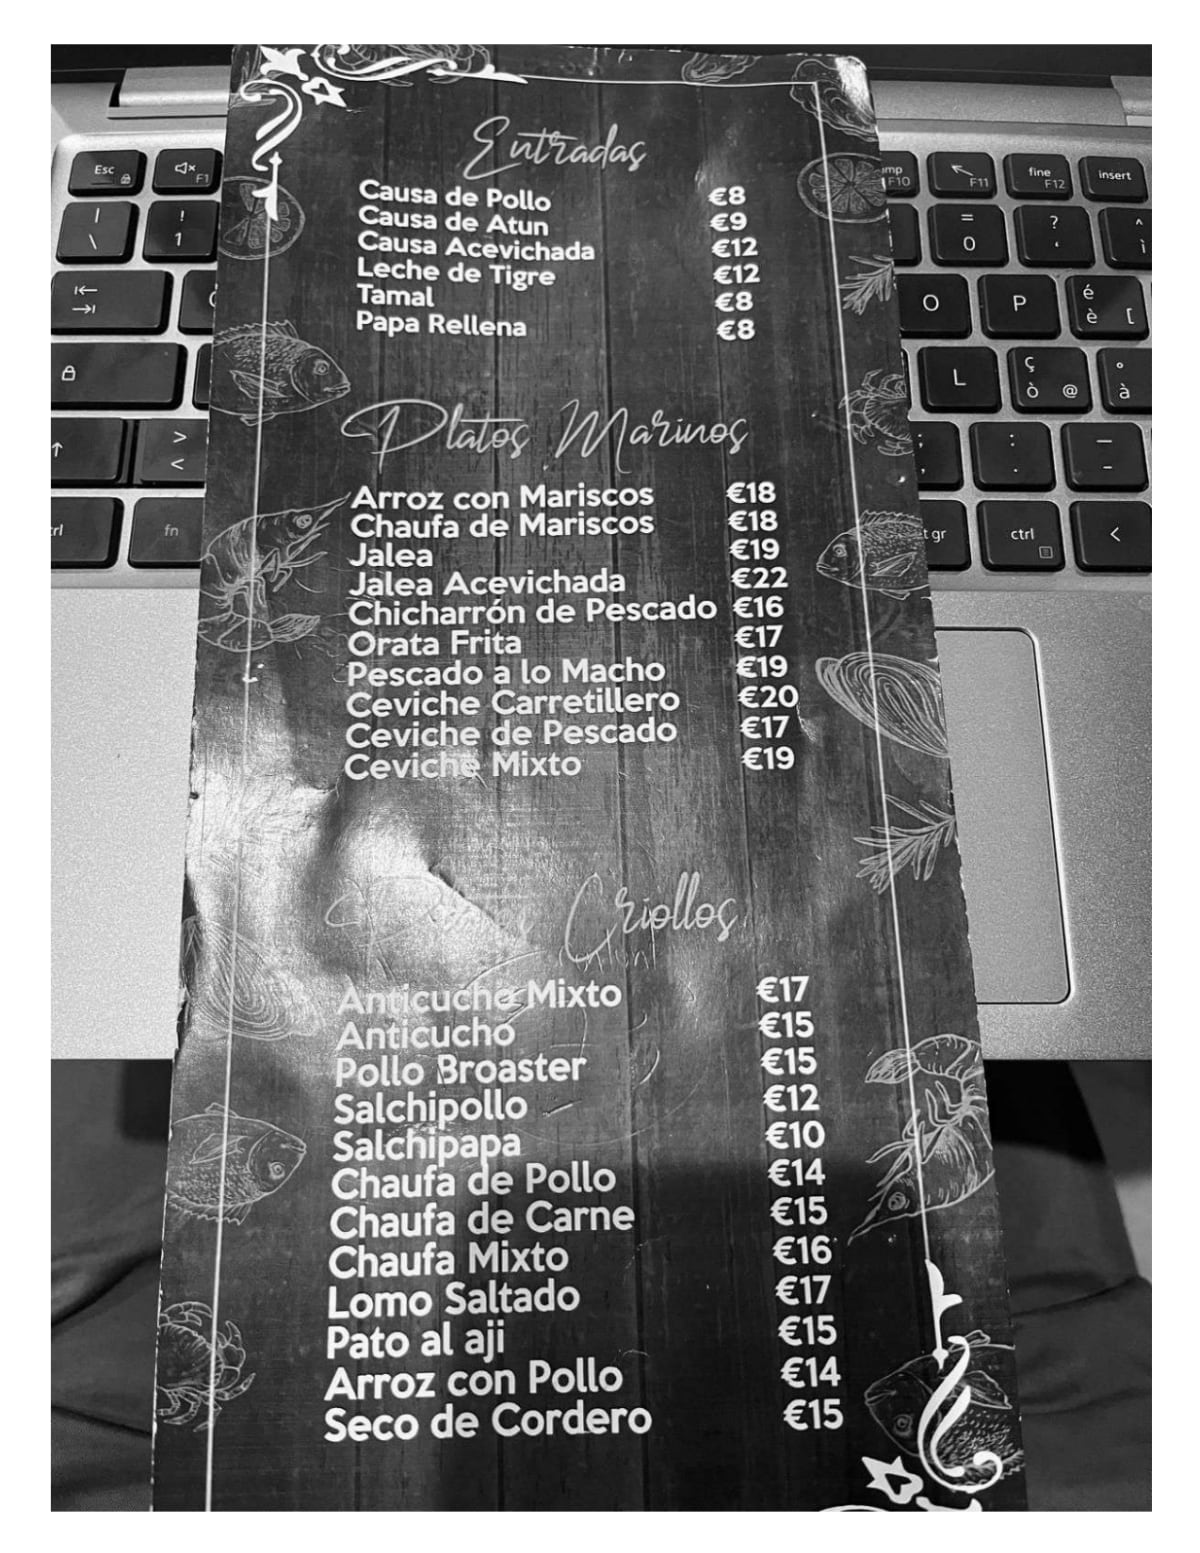 Entradas
Causa de Pollo €8
Causa de Atun €9
Causa Acevichada €12
Leche de Tigre €12
Tamal €8
Papa Rellena €8
Platos Marinos
Arroz con Mariscos €18
Chaufa de Mariscos €18
Jalea €19
Jalea Acevichada €22
Chicharrón de Pescado €16
Orata Frita €17
Pescado a lo Macho €19
Ceviche Carretillero €20
Ceviche de Pescado €17
Ceviche Mixto €19
Platos Criollos
Anticucho Mixto €17
Anticucho €15
Pollo Broaster €15
Salchipollo €12
Salchipapa €10
Chaufa de Pollo €14
Chaufa de Carne €15
Chaufa Mixto €16
Lomo Saltado €17
Pato al aji €15
Arroz con Pollo €14
Seco de Cordero €15
Esc
F1
F10
F11
fine F12
insert
| \
! 1
= 0
? '
^ ì
O
P
é è [
L
ç ò @
° à
> <
; ,
: .
_ -
fn
gr
ctrl
<